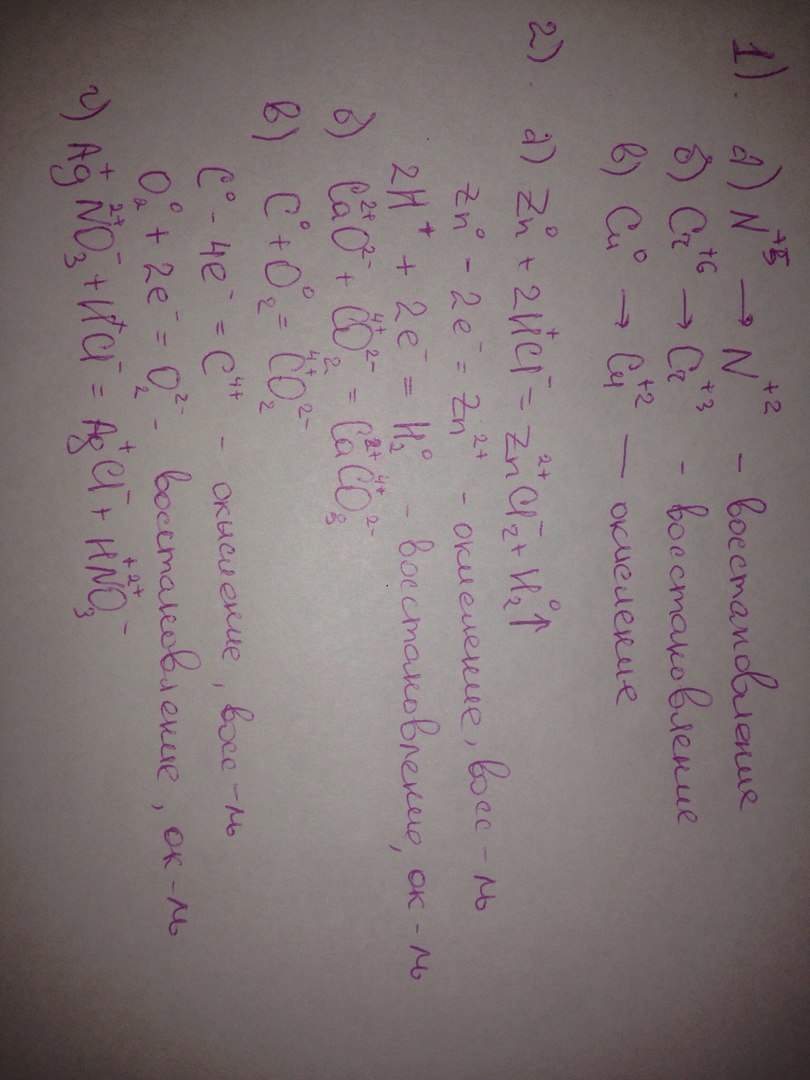 1). а) N⁺⁵ → N⁺² – восстановление
б) Cr⁺⁶ → Cr⁺³ – восстановление
в) Cu⁰ → Cu⁺² — окисление
2). а) Zn⁰ + 2H⁺Cl⁻ = Zn²⁺Cl₂⁻ + H₂⁰↑
Zn⁰ - 2e⁻ = Zn²⁺ - окисление, восс-ль
2H⁺ + 2e⁻ = H₂⁰ - восстановление, ок-ль
б) Ca²⁺O²⁻ + C⁴⁺O₂²⁻ = Ca²⁺C⁴⁺O₃²⁻
в) C⁰ + O₂⁰ = C⁴⁺O₂²⁻
C⁰ - 4e⁻ = C⁴⁺ - окисление, восс-ль
O₂⁰ + 2e⁻ = O₂²⁻ - восстановление, ок-ль
г) Ag⁺N²⁺O₃⁻ + H⁺Cl⁻ = Ag⁺Cl⁻ + H⁺N²⁺O₃⁻